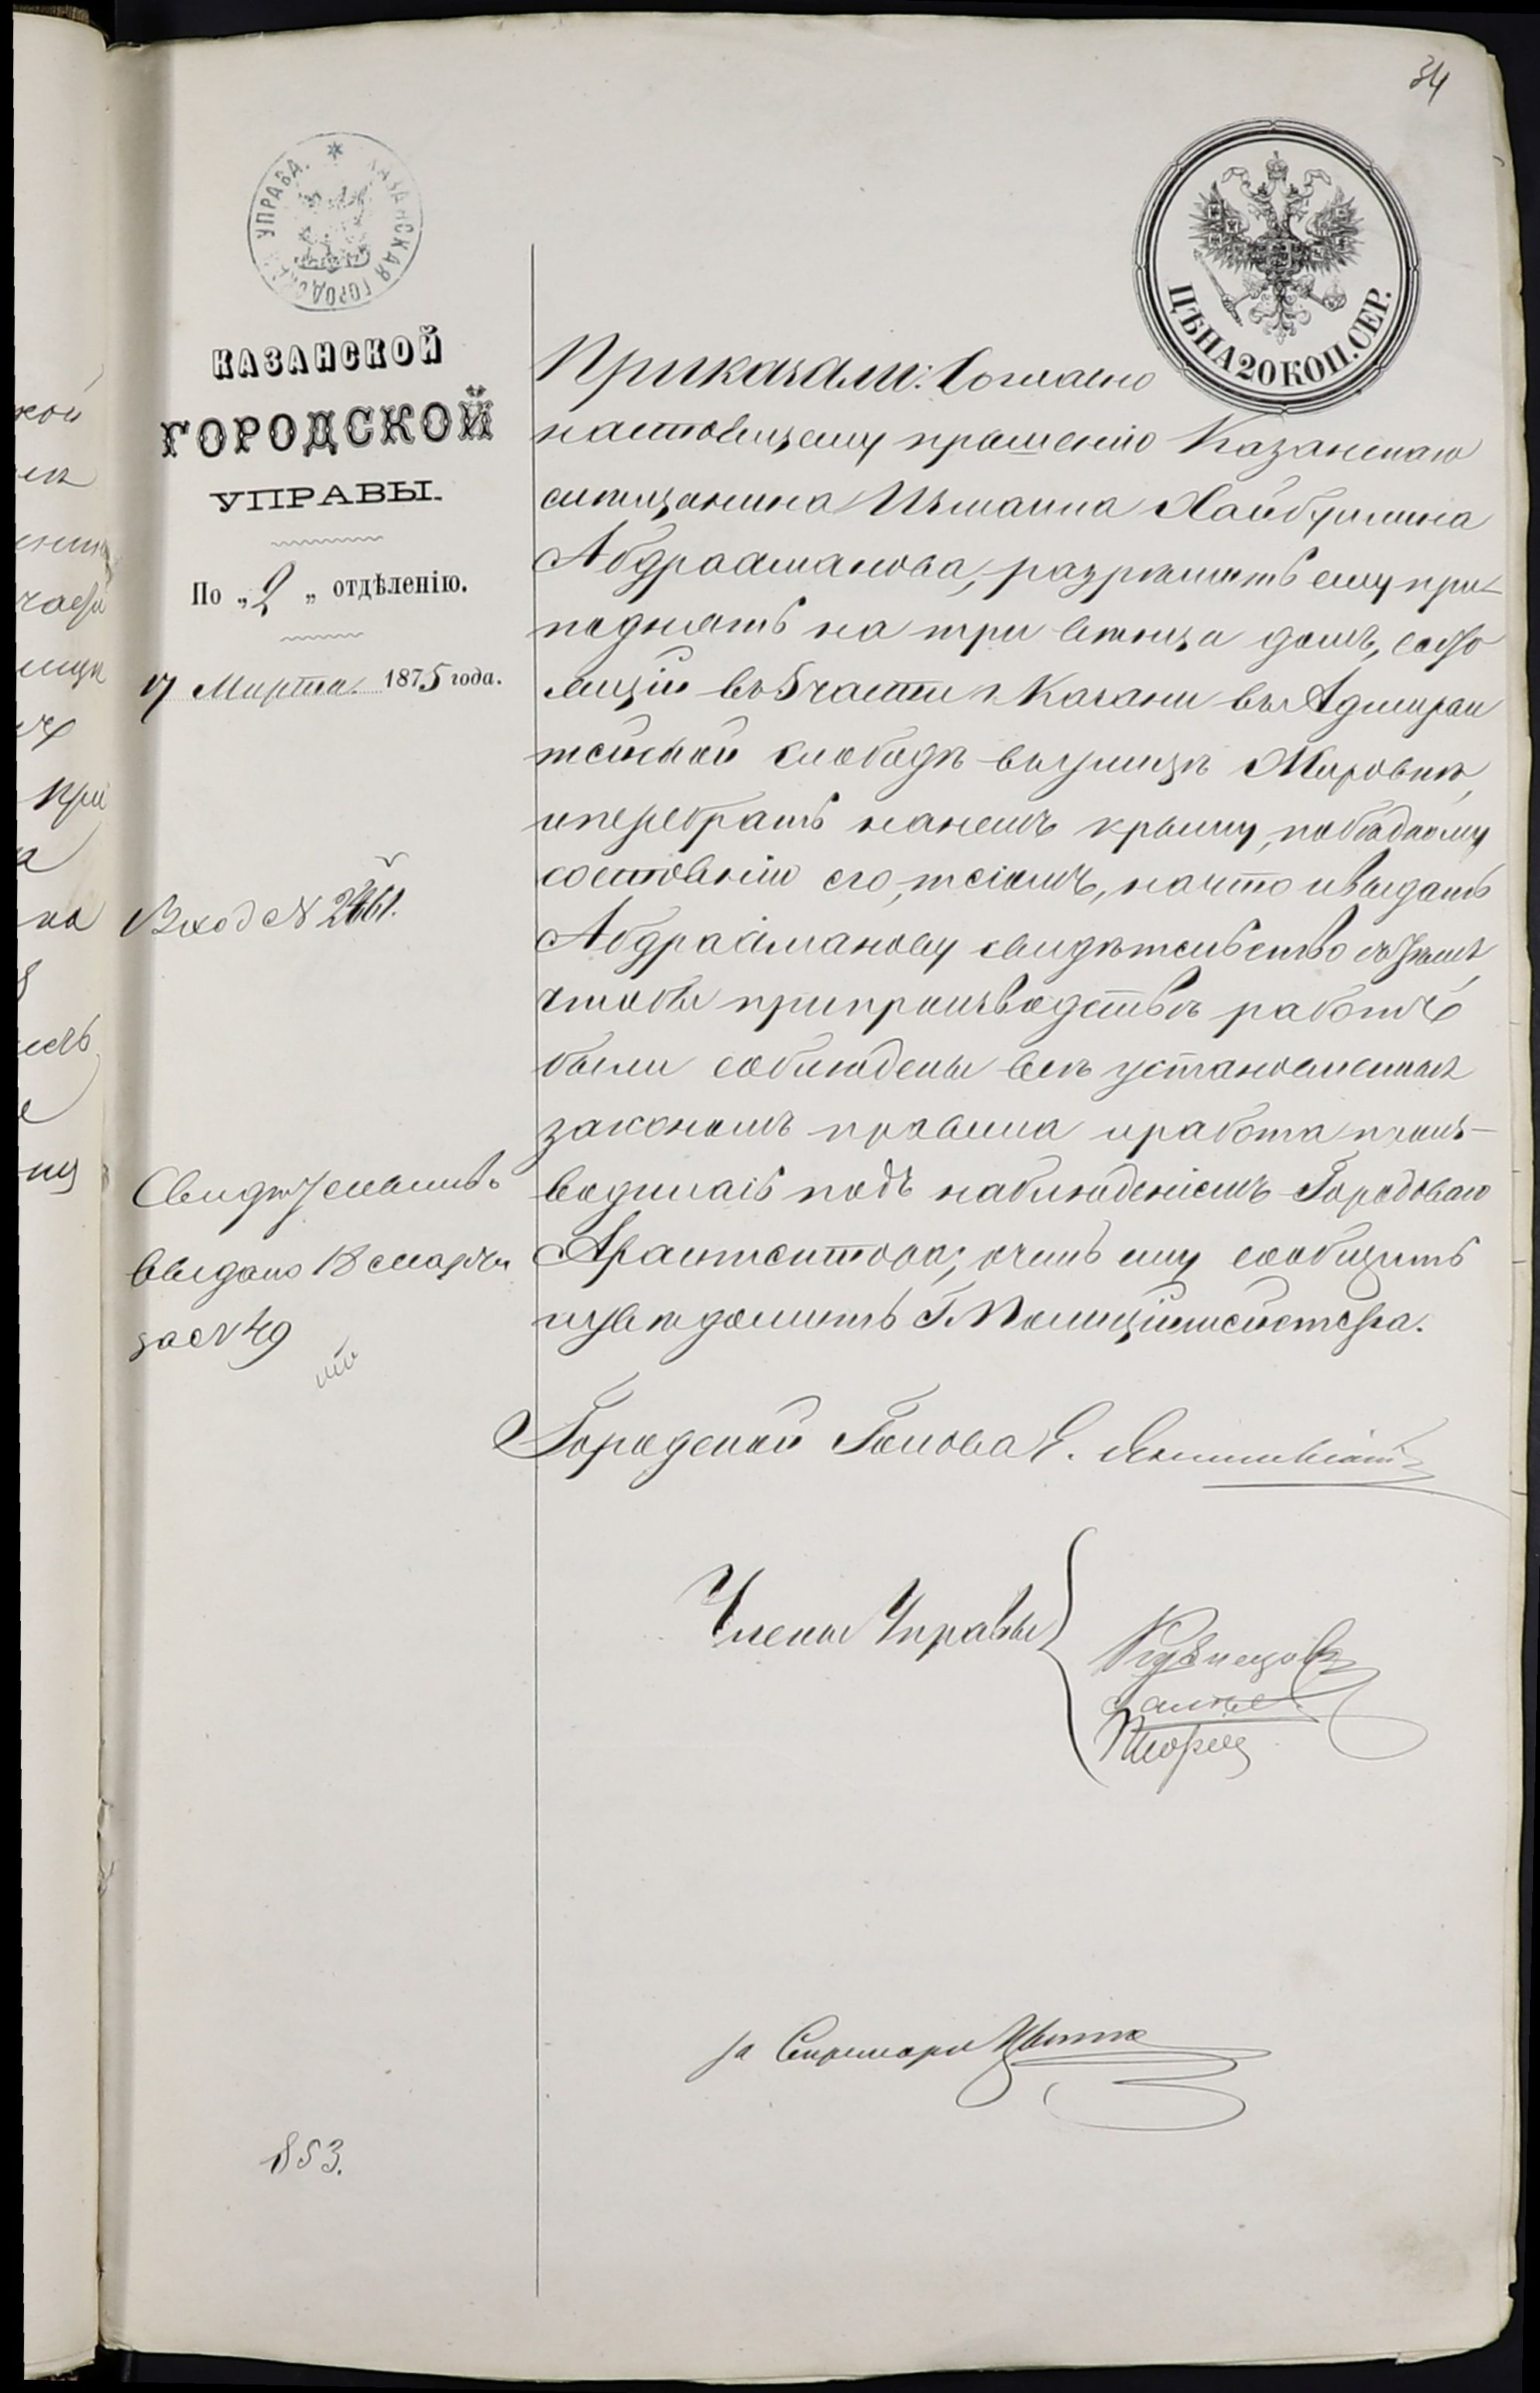 34
КАЗАНСКАЯ ГОРОДСКАЯ УПРАВА.
ЦѢНА 20 КОП. СЕР.
КАЗАНСКОЙ
ГОРОДСКОЙ
УПРАВЫ.
По „2„ отдѣленію.
17 Марта 1875 года.
Вход №
Свидѣтельство
выдано 18 марта
за № 49
853.
Приказали: Согласно
настоящему прошенію Казанскаго
мѣщанина Измаила Хайбуллина
Абдрааманова, разрѣшить ему при-
поднять на три венца домъ, состо
ящій въ 5 части г. Казани въ Адмирал
тейской слободѣ въ улицѣ
и перебрать на немъ крышу, по
состоянію его, тесомъ, на что и выдать
Абдрааманову свидѣтельство съ тѣмъ,
чтобы при производствѣ работъ
были соблюдены всѣ установленныя
закономъ правила и работа произ-
водилась подъ наблюденіемъ Городоваго
Архитектора; о чемъ ему сообщить
и увѣдомить Г. Полиціймейстера.
Городской Голова Е. Янишевскій
Члены Управы
Кузнецовъ
за Секретаря